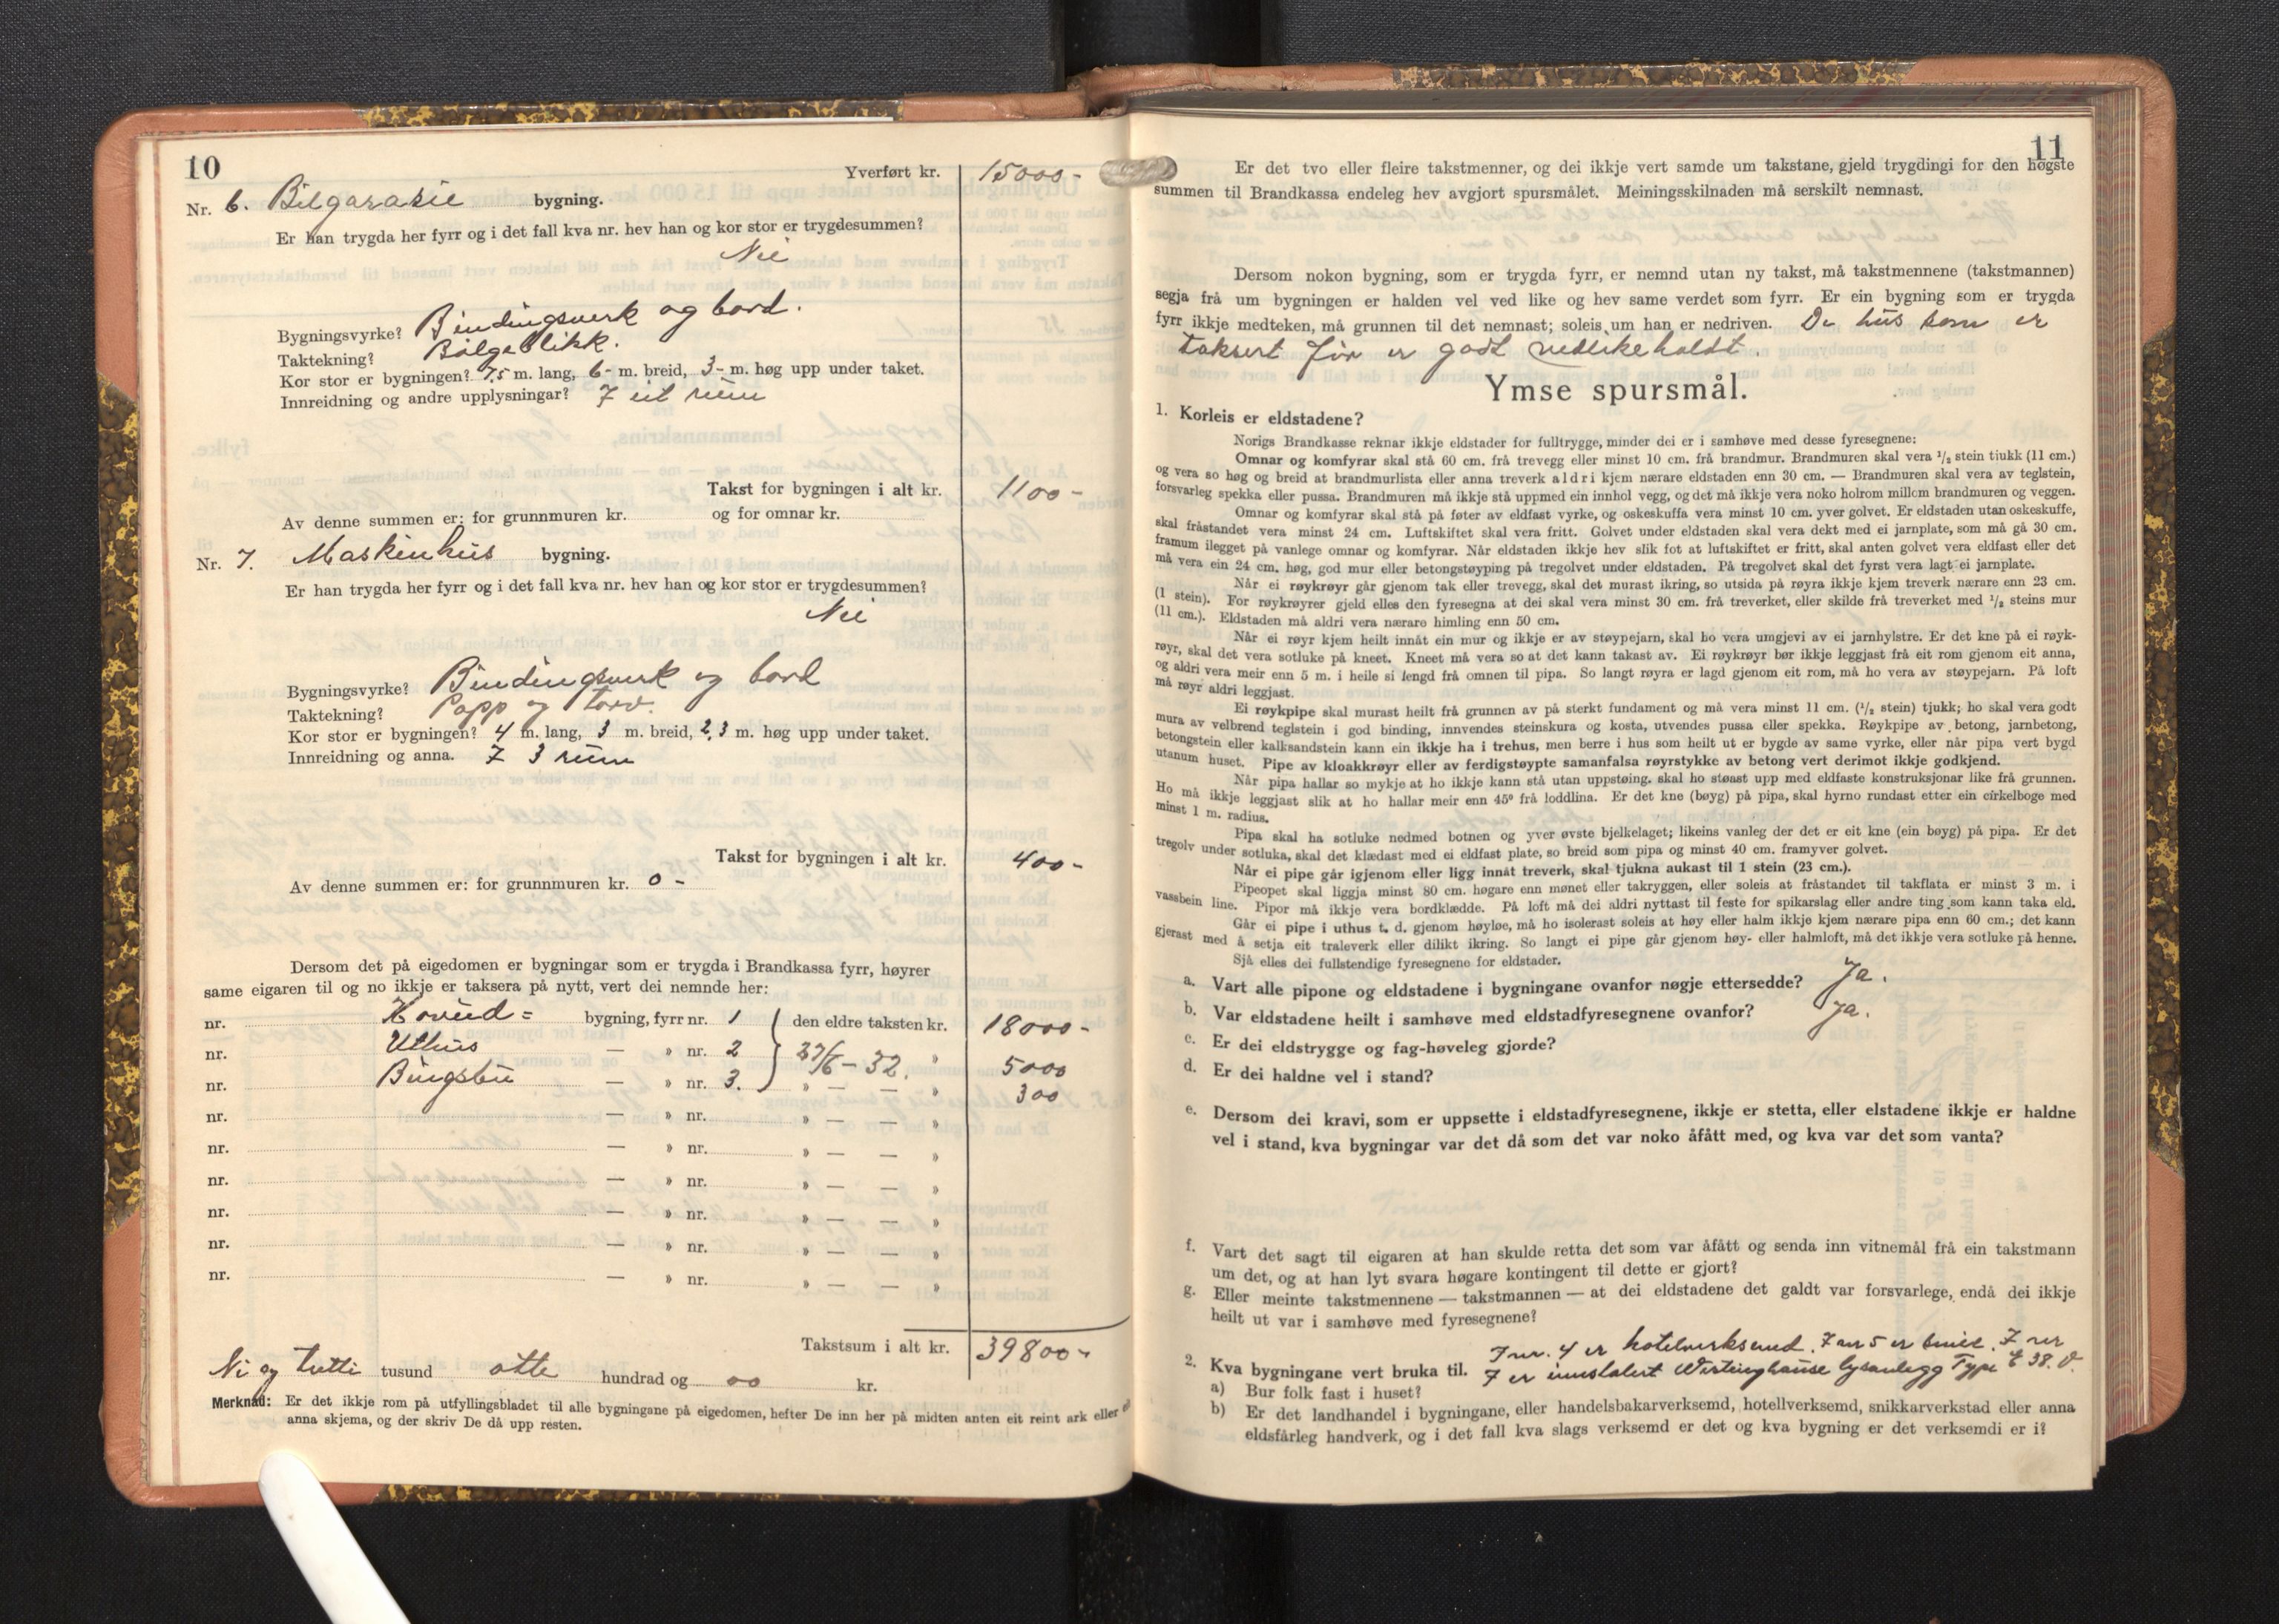 10
Yverført kr. 15000-
Nr. 6. Bilgarasie bygning.
Er han trygda her fyrr og i det fall kva nr. hev han og kor stor er trygdesummen?
Nei
Bygningsvyrke? Bindingsverk og bord.
Taktekning? Bølgeblikk.
Kor stor er bygningen? 7,5 m. lang, 6- m. breid, 3- m. høg upp under taket.
Innreidning og andre upplysningar? I eit rum
Takst for bygningen i alt kr. 1100-
Av denne summen er: for grunnmuren kr. og for omnar kr.
Nr. 7. Maskinhus bygning.
Er han trygda her fyrr og i det fall kva nr. hev han og kor stor er trygdesummen?
Nei
Bygningsvyrke? Bindingsverk og bord
Taktekning? Papp og torv.
Kor stor er bygningen? 4 m. lang, 3 m. breid, 2,3 m. høg upp under taket.
Innreidning og anna. I 3 rum
Takst for bygningen i alt kr. 400-
Av denne summen er: for grunnmuren kr. 0-
Dersom det på eigedomen er bygningar som er trygda i Brandkassa fyrr, høyrer
same eigaren til og no ikkje er taksera på nytt, vert dei nemnde her:
nr. Hovud= bygning, fyrr nr. 1 den eldre taksten kr. 18000-
nr. Uthus — » nr. 2 27/6-32. » 5000
nr. — » nr. 3. » — — » 300
nr. — » nr. » — — »
nr. — » nr. » — — »
nr. — » nr. » — — »
nr. — » nr. » — — »
nr. — » nr. » — — »
nr. — » nr. » — — »
Takstsum i alt kr. 39800-
Ni og tretti tusund otte hundrad og 00 kr.
Merknad: Er det ikkje rom på utfyllingsbladet til alle bygningane på eigedomen, hefter De inn her på midten anten eit reint ark eller
anna skjema, og der skriv De då upp resten.
11
Er det tvo eller fleire takstmenner, og dei ikkje vert samde um takstane, gjeld trygdingi for den høgste
summen til Brandkassa endeleg hev avgjort spursmålet. Meiningsskilnaden må serskilt nemnast.
Dersom nokon bygning, som er trygda fyrr, er nemnd utan ny takst, må takstmennene (takstmannen)
segja frå um bygningen er halden vel ved like og hev same verdet som fyrr. Er ein bygning som er trygda
fyrr ikkje medteken, må grunnen til det nemnast; soleis um han er nedriven. De hus som er
taksert før er godt vedlikeholdt.
Ymse spursmål.
1. Korleis er eldstadene?
Norigs Brandkasse reknar ikkje eldstader for fulltrygge, minder dei er i samhøve med desse fyresegnene:
Omnar og komfyrar skal stå 60 cm. frå trevegg eller minst 10 cm. frå brandmur. Brandmuren skal vera 1/2 stein tjukk (11 cm.)
og vera so høg og breid at brandmurlista eller anna treverk aldri kjem nærare eldstaden enn 30 cm. — Brandmuren skal vera av teglstein,
forsvarleg spekka eller pussa. Brandmuren må ikkje stå uppmed ein innhol vegg, og det må ikkje vera noko holrom millom brandmuren og veggen.
Omnar og komfyrar skal stå på føter av eldfast vyrke, og oskeskuffa vera minst 10 cm. yver golvet. Er eldstaden utan oskeskuffe,
skal fråstandet vera minst 24 cm. Luftskiftet skal vera fritt. Golvet under eldstaden skal vera dekt med ei jarnplate, som må gå 30 cm.
framum ilegget på vanlege omnar og komfyrar. Når eldstaden ikkje hev slik fot at luftskiftet er fritt, skal anten golvet vera eldfast eller det
må vera ein 24 cm. høg, god mur eller betongstøyping på tregolvet under eldstaden. På tregolvet skal det fyrst vera lagt ei jarnplate.
Når ei røykrøyr går gjenom tak eller trevegg, skal det murast ikring, so utsida på røyra ikkje kjem treverk nærare enn 23 cm.
(1 stein). For røykrøyrer gjeld elles den fyresegna at dei skal vera minst 30 cm. frå treverket, eller skilde frå treverket med 1/2 steins mur
(11 cm.). Eldstaden må aldri vera nærare himling enn 50 cm.
Når ei røyr kjem heilt innåt ein mur og ikkje er av støypejarn, skal ho vera umgjevi av ei jarnhylstre. Er det kne på ei røyk-
røyr, skal det vera sotluke på kneet. Kneet må vera so at det kann takast av. Ei røykrøyr bør ikkje leggjast frå eit rom gjenom eit anna,
og aldri vera meir enn 5 m. i heile si lengd frå omnen til pipa. So langt røyra er lagd gjenom eit rom, må ho vera av støypejarn. På loft
må røyr aldri leggjast.
Ei røykpipe skal murast heilt frå grunnen av på sterkt fundament og må vera minst 11 cm. (1/2 stein) tjukk; ho skal vera godt
mura av velbrend teglstein i god binding, innvendes steinskura og kosta, utvendes pussa eller spekka. Røykpipe av betong, jarnbetong,
betongstein eller kalksandstein kann ein ikkje ha i trehus, men berre i hus som heilt ut er bygde av same vyrke, eller når pipa vert bygd
utanum huset. Pipe av kloakkrøyr eller av ferdigstøypte samanfalsa røyrstykke av betong vert derimot ikkje godkjend.
Når pipa hallar so mykje at ho ikkje kann stå utan uppstøing, skal ho støast upp med eldfaste konstruksjonar like frå grunnen.
Ho må ikkje leggjast slik at ho hallar meir enn 45° frå loddlina. Er det kne (bøyg) på pipa, skal hyrno rundast etter ein cirkelboge med
minst 1 m. radius.
Pipa skal ha sotluke nedmed botnen og yver øvste bjelkelaget; likeins vanleg der det er eit kne (ein bøyg) på pipa. Er det
tregolv under sotluka, skal det klædast med ei eldfast plate, so breid som pipa og minst 40 cm. framyver golvet.
Når ei pipe går igjenom eller ligg innåt treverk, skal tjukna aukast til 1 stein (23 cm.).
Pipeopet skal liggja minst 80 cm. høgare enn mønet eller takryggen, eller soleis at fråstandet til takflata er minst 3 m. i
vassbein line. Pipor må ikkje vera bordklædde. På loft må dei aldri nyttast til feste for spikarslag eller andre ting som kann taka eld.
Går ei pipe i uthus t. d. gjenom høyløe, må ho isolerast soleis at høy eller halm ikkje kjem nærare pipa enn 60 cm.; det kann
gjerast med å setja eit traleverk eller dilikt ikring. So langt ei pipe går gjenom høy- eller halmloft, må det ikkje vera sotluke på henne.
Sjå elles dei fullstendige fyresegnene for eldstader.
a. Vart alle pipone og eldstadene i bygningane ovanfor nøgje ettersedde? Ja.
b. Var eldstadene heilt i samhøve med eldstadfyresegnene ovanfor? Ja.
c. Er dei eldstrygge og fag-høveleg gjorde?
d. Er dei haldne vel i stand?
e. Dersom dei kravi, som er uppsette i eldstadfyresegnene, ikkje er stetta, eller elstadene ikkje er haldne
vel i stand, kva bygningar var det då som det var noko åfått med, og kva var det som vanta?
f. Vart det sagt til eigaren at han skulde retta det som var åfått og senda inn vitnemål frå ein takstmann
um det, og at han lyt svara høgare kontingent til dette er gjort?
g. Eller meinte takstmennene — takstmannen — at dei eldstadene det galdt var forsvarlege, endå dei ikkje
heilt ut var i samhøve med fyresegnene?
I nr. 4 er hotelverksemd. I nr 5 er smie. I nr
2. Kva bygningane vert bruka til. 7 er innstalert lysanlegg Type
a) Bur folk fast i huset?
b) Er det landhandel i bygningane, eller handelsbakarverksemd, hotellverksemd, snikkarverkstad eller anna
eldsfårleg handverk, og i det fall kva slags verksemd er det og kva bygning er det verksemdi er i?